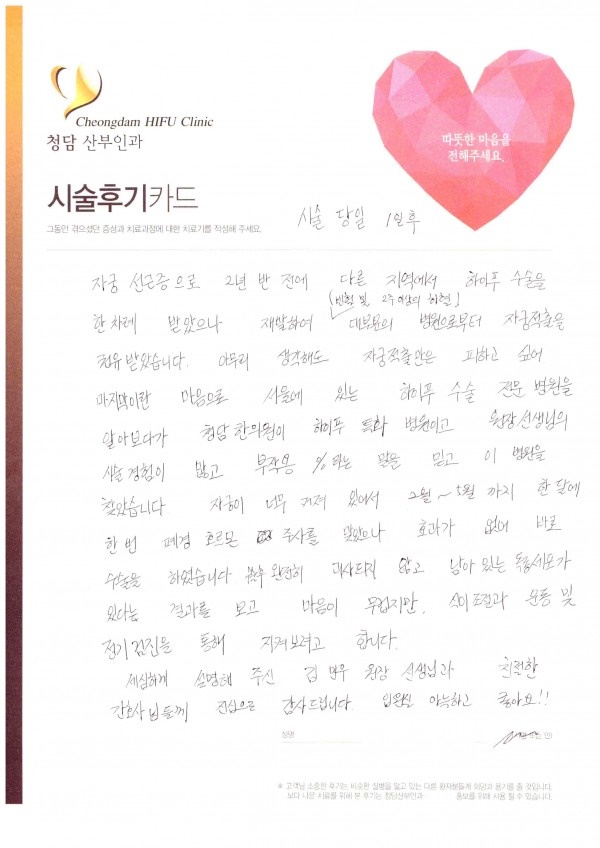 Cheongdam HIFU Clinic
청담 산부인과
따뜻한 마음을
전해주세요.
시술후기카드
그동안 겪으셨던 증상과 치료과정에 대한 치료기를 작성해 주세요.
시술 당일 1일후
자궁 선근증으로 2년 반 전에 다른 지역에서 하이푸 수술을
(빈혈 및 2주이상의 하혈!)
한차례 받았으나 재발하여 대부분의 병원으로부터 자궁적출을
권유받았습니다. 아무리 생각해도 자궁적출만은 피하고 싶어
마지막이란 마음으로 서울에 있는 하이푸 수술 전문 병원을
알아보다가 청담한의원이 하이푸 특화 병원이고 원장선생님의
시술 경험이 많고 부작용 0%라는 말을 믿고 이 병원을
찾았습니다 자궁이 너무 커져 있어서 2월~5월 까지 한 달에
한 번 폐경 호르몬 주사를 맞았으나 효과가 없어 바로
수술을 하였습니다 완전히 괴사되지 않고 남아 있는 독종세포가
있다는 결과를 보고 마음이 무겁지만, 식이조절과 운동 및
정기검진을 통해 지켜보려고 합니다.
세심하게 설명해 주신 김민우 원장 선생님과 친절한
간호사님들께 진심으로 감사드립니다. 입원실 아늑하고 좋아요!!
성명
(인)
※ 고객님 소중한 후기는 비슷한 질병을 앓고 있는 다른 환자분들께 희망과 용기를 줄 것입니다.
보다 나은 치료를 위해 본 후기는 청담산부인과 홍보를 위해 사용 될 수 있습니다.